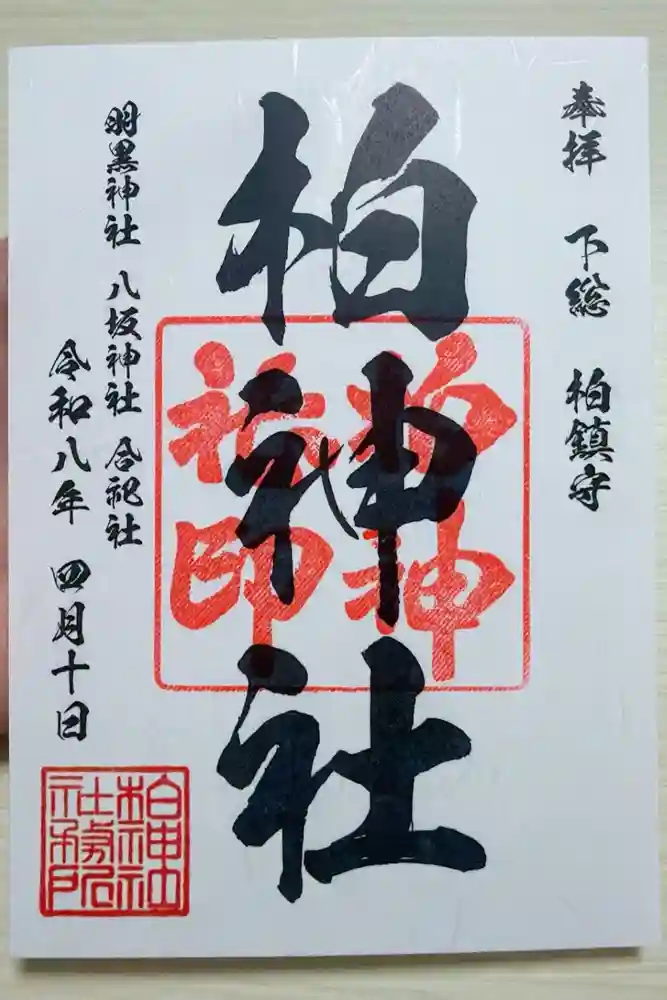 奉拝 下総 柏鎮守
柏神社
柏神
社印
羽黒神社 八坂神社 合祀社
令和八年 四月十日
柏神社
社務所